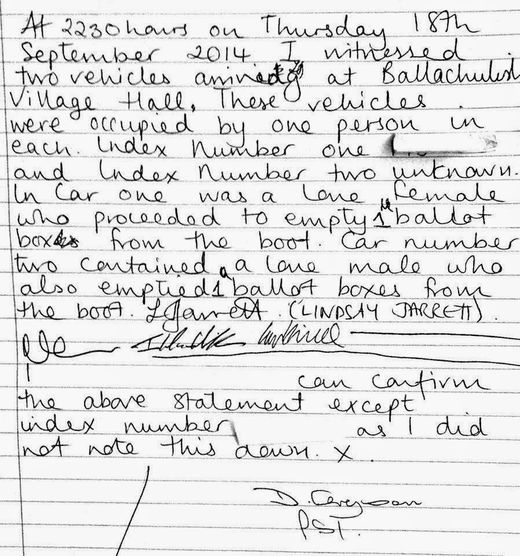 At 2230 hours on Thursday 18th
September 2014 I witnessed
two vehicles arriving at Ballachulish
Village Hall. These vehicles
were occupied by one person in
each. Index Number one
and Index Number two unknown.
In Car one was a lone female
who proceeded to empty 1 ballot
box from the boot. Car number
two contained a lone male who
also emptied 1 ballot boxes from
the boot. LJarrett. (LINDSAY JARRETT).
I
can confirm
the above statement except
index number as I did
not note this down. x.
D. Ferguson